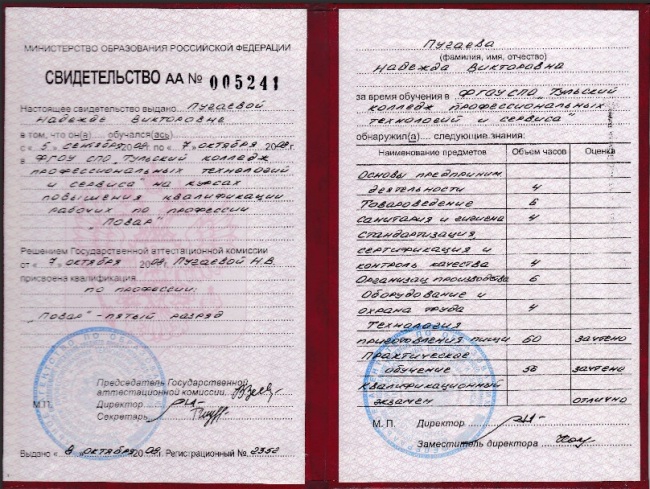 МИНИСТЕРСТВО ОБРАЗОВАНИЯ РОССИЙСКОЙ ФЕДЕРАЦИИ
СВИДЕТЕЛЬСТВО АА № 005241
Настоящее свидетельство выдано Пугаевой
Надежде Викторовне
в том, что он(а) обучался(ась)
с « 5 » сентября 2008 г. по « 7 » октября 2008 г.
в ФГОУ СПО „Тульский колледж
профессиональных технологий
и сервиса" на курсах
повышения квалификации
рабочих по профессии
„Повар"
Решением Государственной аттестационной комиссии
от « 7 » октября 2008 Пугаевой Н.В.
присвоена квалификация
по профессии:
„Повар" - пятый разряд
Председатель Государственной
аттестационной комиссии
М.П.
Директор
Секретарь
Выдано « 8 » октября 2008 г. Регистрационный № 2352
Пугаева
(фамилия, имя, отчество)
Надежда Викторовна
за время обучения в ФГОУ СПО „Тульский
колледж профессиональных
технологий и сервиса"
обнаружил(а) следующие знания:
Наименование предметов Объем часов Оценка
Основы предприним
деятельности 4
Товароведение 6
Санитария и гигиена 4
Стандартизация,
сертификация и
контроль качества 4
Организац производства 6
Оборудование и
охрана труда 4
Технология
приготовления пищи 60 зачтено
Практическое
обучение 56 зачтено
Квалификационный
экзамен отлично
М. П. Директор
Заместитель директора